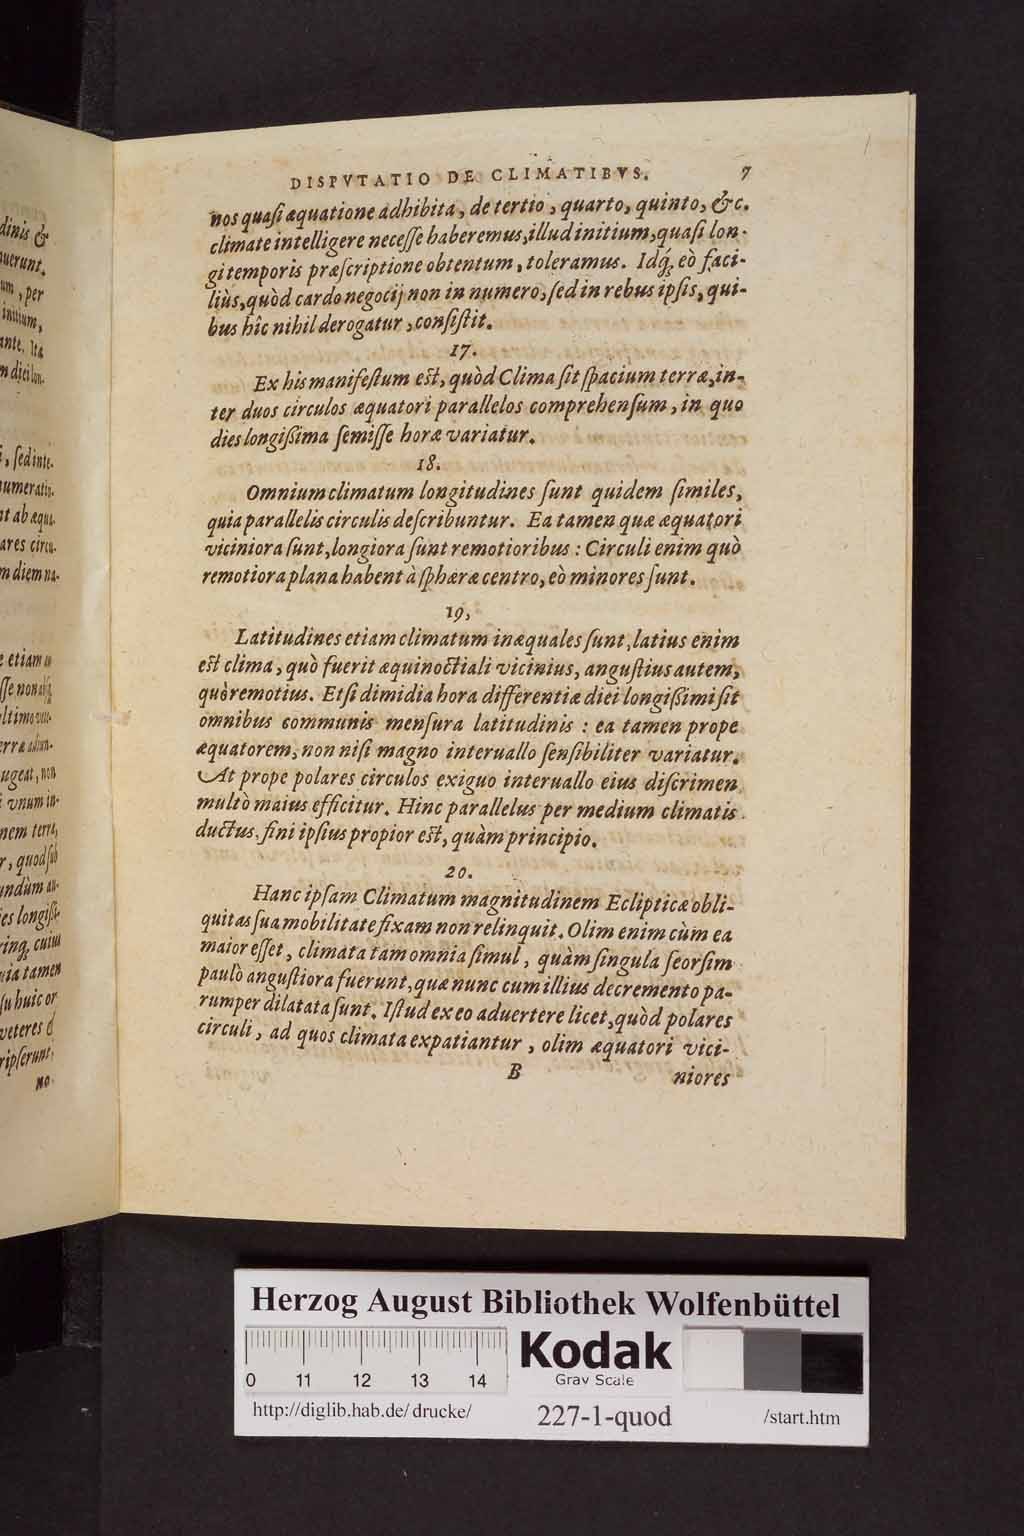 DISPVTATIO DE CLIMATIBVS. 7
nos quasi æquatione adhibita, de tertio, quarto, quinto, &c.
climate intelligere necesse haberemus, illud initium, quasi lon-
gi temporis præscriptione obtentum, toleramus. Idq; eò faci-
liùs, quòd cardo negocij non in numero, sed in rebus ipsis, qui-
bus hîc nihil derogatur, consistit.
17.
Ex his manifestum est, quòd Clima sit spacium terræ, in-
ter duos circulos æquatori parallelos comprehensum, in quo
dies longißima semisse horæ variatur.
18.
Omnium climatum longitudines sunt quidem similes,
quia parallelis circulis describuntur. Ea tamen quæ æquatori
viciniora sunt, longiora sunt remotioribus: Circuli enim quò
remotiora plana habent à sphæræ centro, eò minores sunt.
19,
Latitudines etiam climatum inæquales sunt, latius enim
est clima, quò fuerit æquinoctiali vicinius, angustius autem,
quò remotius. Etsi dimidia hora differentiæ diei longißimi sit
omnibus communis mensura latitudinis: ea tamen prope
æquatorem, non nisi magno interuallo sensibiliter variatur.
At prope polares circulos exiguo interuallo eius discrimen
multò maius efficitur. Hinc parallelus per medium climatis
ductus, fini ipsius propior est, quàm principio.
20.
Hanc ipsam Climatum magnitudinem Eclipticæ obli-
quitas sua mobilitate fixam non relinquit. Olim enim cùm ea
maior esset, climata tam omnia simul, quàm singula seorsim
paulò angustiora fuerunt, quæ nunc cum illius decremento pa-
rumper dilatata sunt. Istud ex eo aduertere licet, quòd polares
circuli, ad quos climata expatiantur, olim æquatori vici-
B niores
dinis &
uerunt.
um, per
initium,
ante. Ita
m diei lon-
, sed inte-
numeratin-
nt ab æqua-
ares circu-
m diem na-
e etiam
sse non
ltimo
erræ
ugeat, non
vnum in-
nem terræ,
r, quod sub
undùm au-
es longißi-
rinq; cuius
uia tamen
su huic or
veteres &
ripserunt,
no-
Herzog August Bibliothek Wolfenbüttel
0 11 12 13 14
Kodak
Gray Scale
http://diglib.hab.de/drucke/ 227-1-quod /start.htm